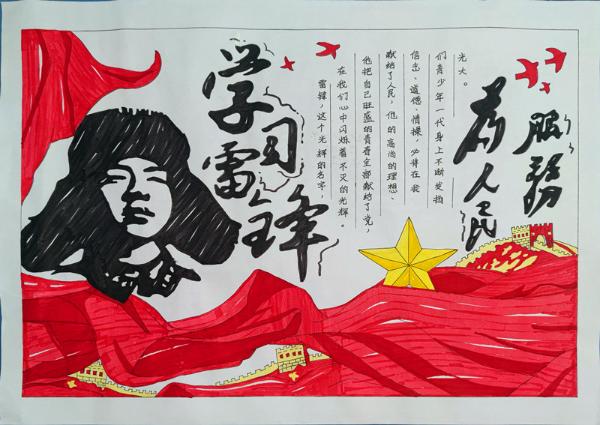 学习
雷锋
雷锋，这个光辉的名字，
在我们心中闪烁着不灭的光辉。
他把自己旺盛的青春全部献给了党，
献给了人民，他的高尚的理想、
信念、道德、情操，必将在我
们青少年一代身上不断发扬
光大。
為人民
服務